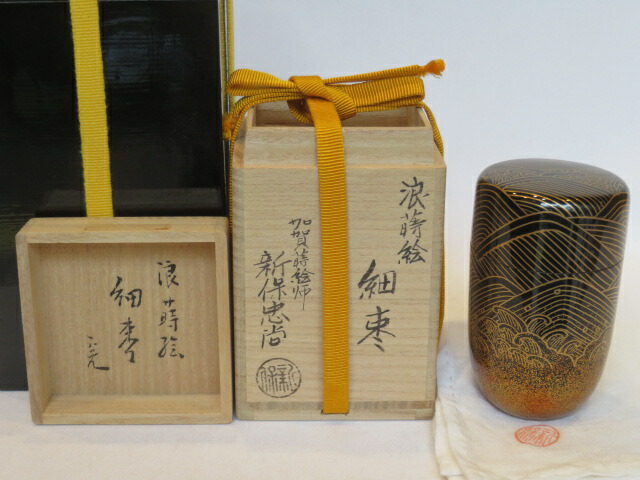 浪蒔絵
細棗
加賀蒔絵师
新保忠尚
浪蒔絵
細棗